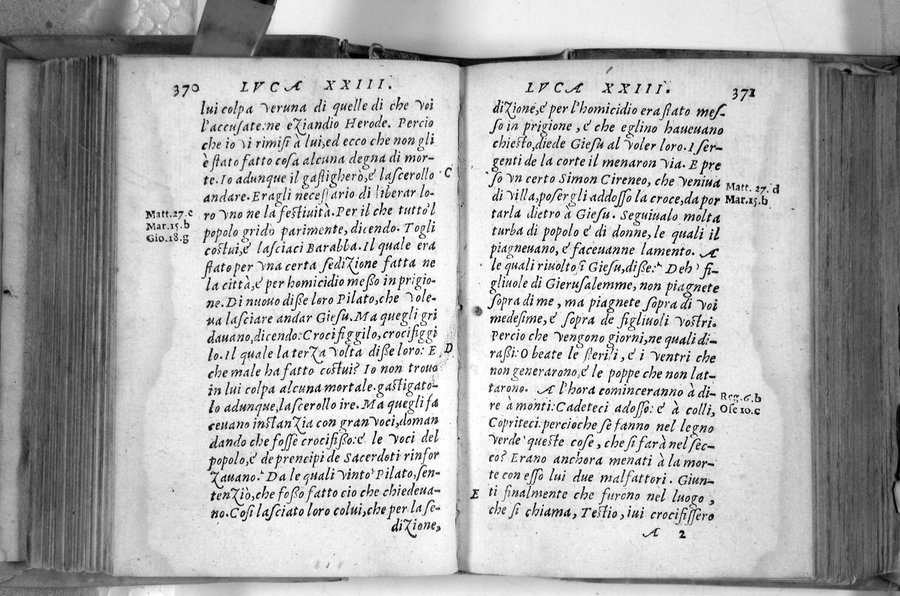 370 LVCA XXIII.
lui colpa veruna di quelle di che voi
l'accusate:ne eziandio Herode. Percio
che io vi rimisi à lui,ed ecco che non gli
è stato fatto cosa alcuna degna di mor-
te. Io adunque il gastigherò,e lascerollo C
andare. Eragli necessario di liberar lo-
Matt.27.c
Mar.15.b
Gio.18.g
ro vno ne la festiuità. Per il che tutto'l
popolo gridò parimente, dicendo. Togli
costui,e lasciaci Barabba. Il quale era
stato per vna certa sedizione fatta ne
la città,e per homicidio messo in prigio-
ne. Di nuouo disse loro Pilato,che vole-
ua lasciare andar Giesu. Ma quegli gri
dauano,dicendo:Crocifiggilo,crocifiggi
lo. Il quale la terza volta disse loro: E D
che male ha fatto costui? Io non trouo
in lui colpa alcuna mortale. gastigato-
lo adunque,lascerollo ire. Ma quegli fa
ceuano instanzia con gran voci,doman
dando che fosse crocifisso:e le voci del
popolo,e de prencipi de Sacerdoti rinfor
zauano. Da le quali vinto Pilato,sen-
tenziò,che fosso fatto cio che chiedeua-
no. Cosi lasciato loro colui,che per la se-
dizione,
LVCA XXIII. 371
dizione,e per l'homicidio era stato mes-
so in prigione, e che eglino haueuano
chiesto,diede Giesu al voler loro. I ser-
genti de la corte il menaron via. E pre
so vn certo Simon Cireneo, che veniua
di villa,posergli addosso la croce,da por
tarla dietro à Giesu. Seguiualo molta
Matt. 27. d
Mar.15.b
turba di popolo e di donne, le quali il
piagneuano, e faceuanne lamento. A
le quali riuoltosi Giesu,disse: Deh fi-
gliuole di Gierusalemme, non piagnete
sopra di me, ma piagnete sopra di voi
medesime, e sopra de figliuoli vostri.
Percio che vengono giorni,ne quali di-
rassi:O beate le sterili, e i ventri che
non generarono,e le poppe che non lat-
tarono. A l'hora cominceranno à di-
re à monti:Cadeteci adosso: e à colli,
Reg.6.b
Ose 10.c
Copriteci. percioche se fanno nel legno
verde queste cose, che si farà nel sec-
co? Erano anchora menati à la mor-
te con esso lui due malfattori. Giun-
E ti finalmente che furono nel luogo,
che si chiama, Testio, iui crocifissero
A 2